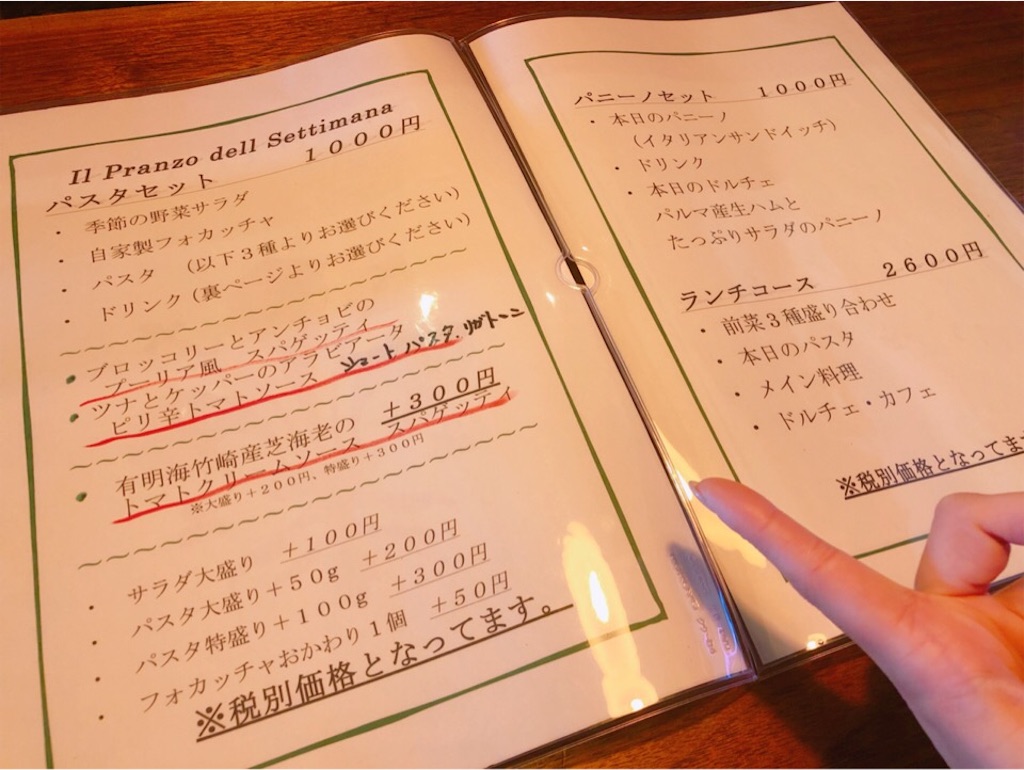 Il Pranzo dell Settimana
パスタセット 1000円
・季節の野菜サラダ
・自家製フォカッチャ
・パスタ （以下３種よりお選びください）
・ドリンク（裏ページよりお選びください）
～～～～～～～～～～～～～～～～～～
・ブロッコリーとアンチョビの
プーリア風 スパゲッティ
～～～～～～～～～～～～～～～～～～
・ツナとケッパーのアラビアータ
ピリ辛トマトソース ショートパスタ.リガトーニ
～～～～～～～～～～～～～～～～～～
・有明海竹崎産芝海老の ＋３００円
トマトクリームソース スパゲッティ
※大盛り＋２００円、特盛り＋３００円
～～～～～～～～～～～～～～～～～～
・サラダ大盛り ＋100円
・パスタ大盛り＋50g ＋200円
・パスタ特盛り＋100g ＋300円
・フォカッチャおかわり１個 ＋50円
※税別価格となってます。
パニーノセット 1000円
・本日のパニーノ
（イタリアンサンドイッチ）
・ドリンク
・本日のドルチェ
パルマ産生ハムと
たっぷりサラダのパニーノ
ランチコース 2600円
・前菜３種盛り合わせ
・本日のパスタ
・メイン料理
・ドルチェ・カフェ
※税別価格となっていま